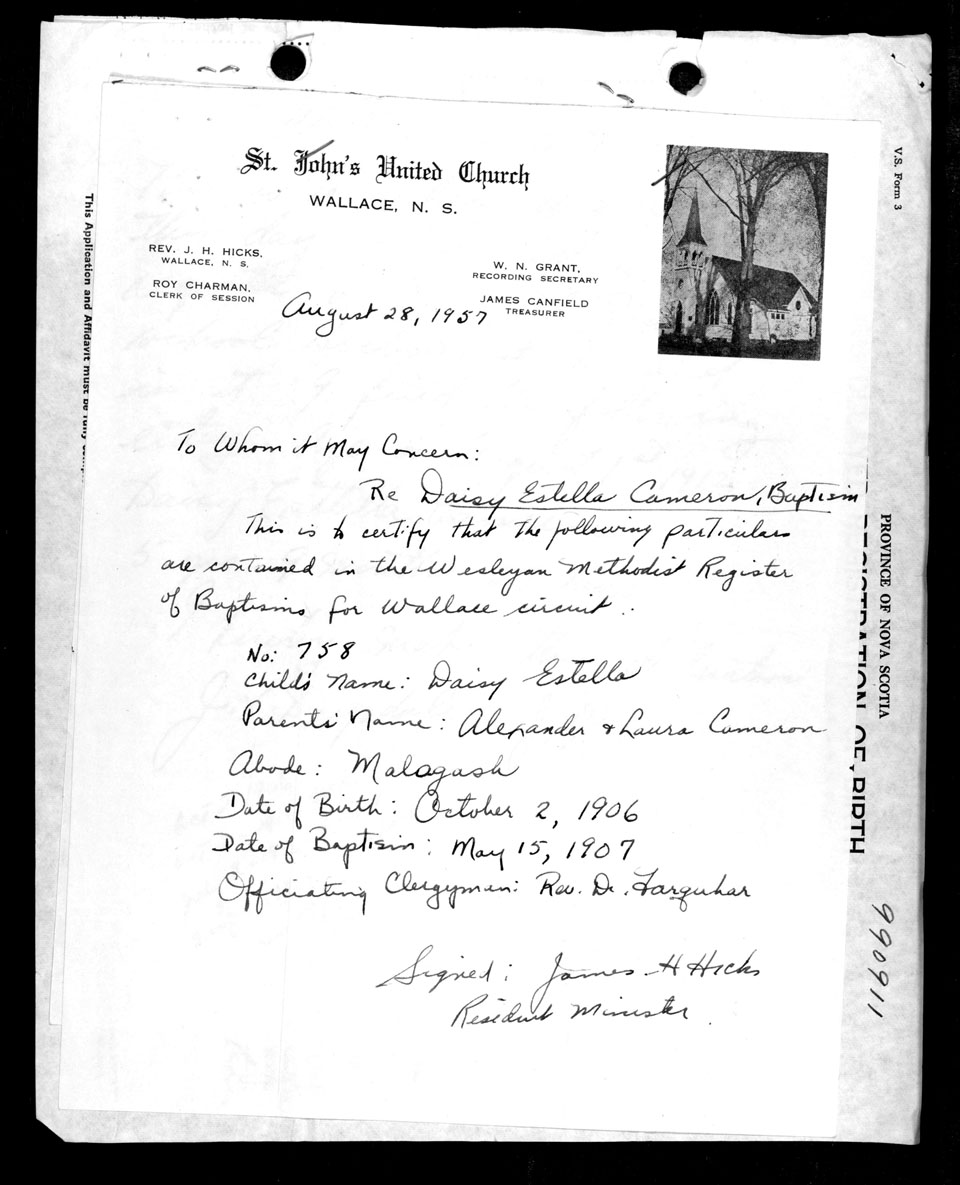 St. John's United Church
WALLACE, N. S.
REV. J. H. HICKS,
WALLACE, N. S.
ROY CHARMAN,
CLERK OF SESSION
W. N. GRANT,
RECORDING SECRETARY
JAMES CANFIELD
TREASURER
August 28, 1957
To Whom it May Concern:
Re Daisy Estella Cameron, Baptism
This is to certify that the following particulars
are contained in the Wesleyan Methodist Register
of Baptisms for Wallace circuit.
No: 758
Child's Name: Daisy Estella
Parents' Name: Alexander & Laura Cameron
Abode: Malagash
Date of Birth: October 2, 1906
Date of Baptism: May 15, 1907
Officiating Clergyman: Rev. D. Farquhar
Signed: James H Hicks
Resident Minister.
This Application and Affidavit must be fully
V.S. Form 3
PROVINCE OF NOVA SCOTIA
REGISTRATION OF BIRTH
990911